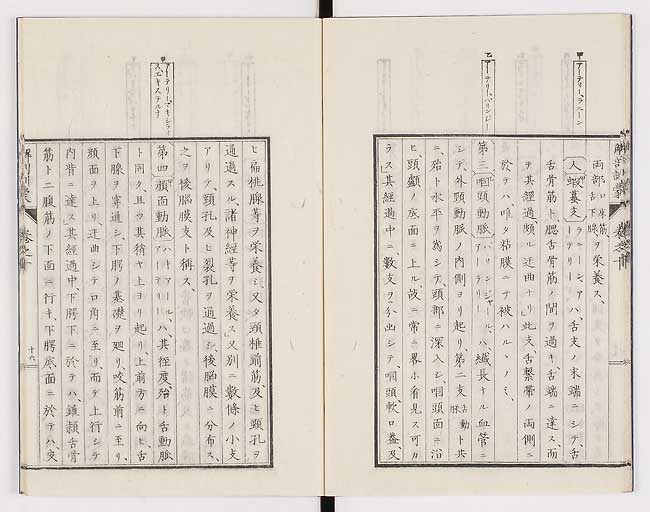 甲
アーテリー、ラニーン
乙
アーテリー、パリンジー
解剖訓蒙
巻之十
両部 牀筋 舌下腺 ヲ栄養ス、
人蝦蟇支 アーテリー ラニーン、ハ、舌支ノ末端ニシテ、舌
舌骨筋ト、腮舌骨筋ノ間ヲ過キ舌端ニ達ス、而
ヲ其経過、頗ル迂曲ナリ此支舌繋帯ノ両側ニ
於テハ、唯タ粘膜ニテ被ハル丶ノミ、
第三 咽頭動脈 アーテリー パリンジャール、ハ、繊長ナル血管ニ
シテ、外頸動脈ノ内側ヨリ起リ、第二支 舌動脈 ト共
ニ、殆ト水平ヲ為シテ、頸部ニ深入シ、咽頭面ニ沿
ヒ、頭顱ノ底面ニ上ル、故ニ常ニ畧ホ省見ス可カ
ラス其経過中ニ数支ヲ分出シテ、咽頭、軟口蓋、及
アーテリー、マキシラリー
スエキステルナ
ヒ扁桃腺等ヲ栄養シ又タ頸椎前筋及ヒ頸孔ヲ
通過スル、諸神経等ヲ栄養ス又別ニ数條ノ小支
アリテ、頸孔及ヒ裂孔ヲ通過シ、後脳膜ニ分布ス、
之ヲ後脳膜支ト称ス、
第四 顔面動脈 アーテリー ハ、其径度、殆ト舌動脈
ト同ク、且ツ其稍ヤ上ヨリ起リ、上前方ニ向ヒ、舌
下腺ヲ穿通シ、下腭ノ基礎ヲ廻リ、咬筋前ニ至リ、
頬面ヲ上リ、迂曲シテ口角ニ至リ、而テ上行シテ
内眥ニ達ス其経過中、下腭下ニ於テハ、錐頚舌骨
筋ト二腹筋ノ下面ニ行キ、下腭底面ニ於テハ、突
解剖訓蒙
巻之十
十六